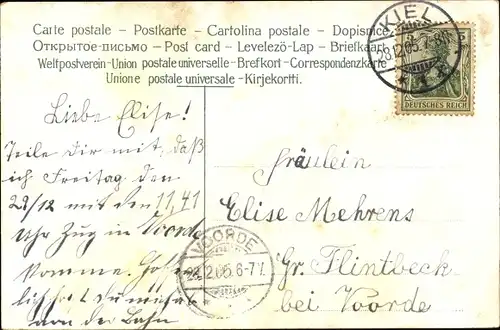 Carte postale – Postkarte – Cartolina postale – Dopisnice
Открытое-письмо – Post card – Levelezö-Lap – Briefkaart
Weltpostverein-Union postale universelle-Brefkort-Correspondenzkarte
Unione postale universale -Kirjekortti.
KIEL
28.12.05.7-8
5
DEUTSCHES REICH
Liebe Elise!
Teile Dir mit, daß
ich Freitag den
22/12 mit dem 11,41
Uhr Zug in Voorde
komme.
du
von der Bahn
VOORDE
12.05.6-7
Fräulein
Elise Mehrens
Gr. Flintbeck
bei Voorde